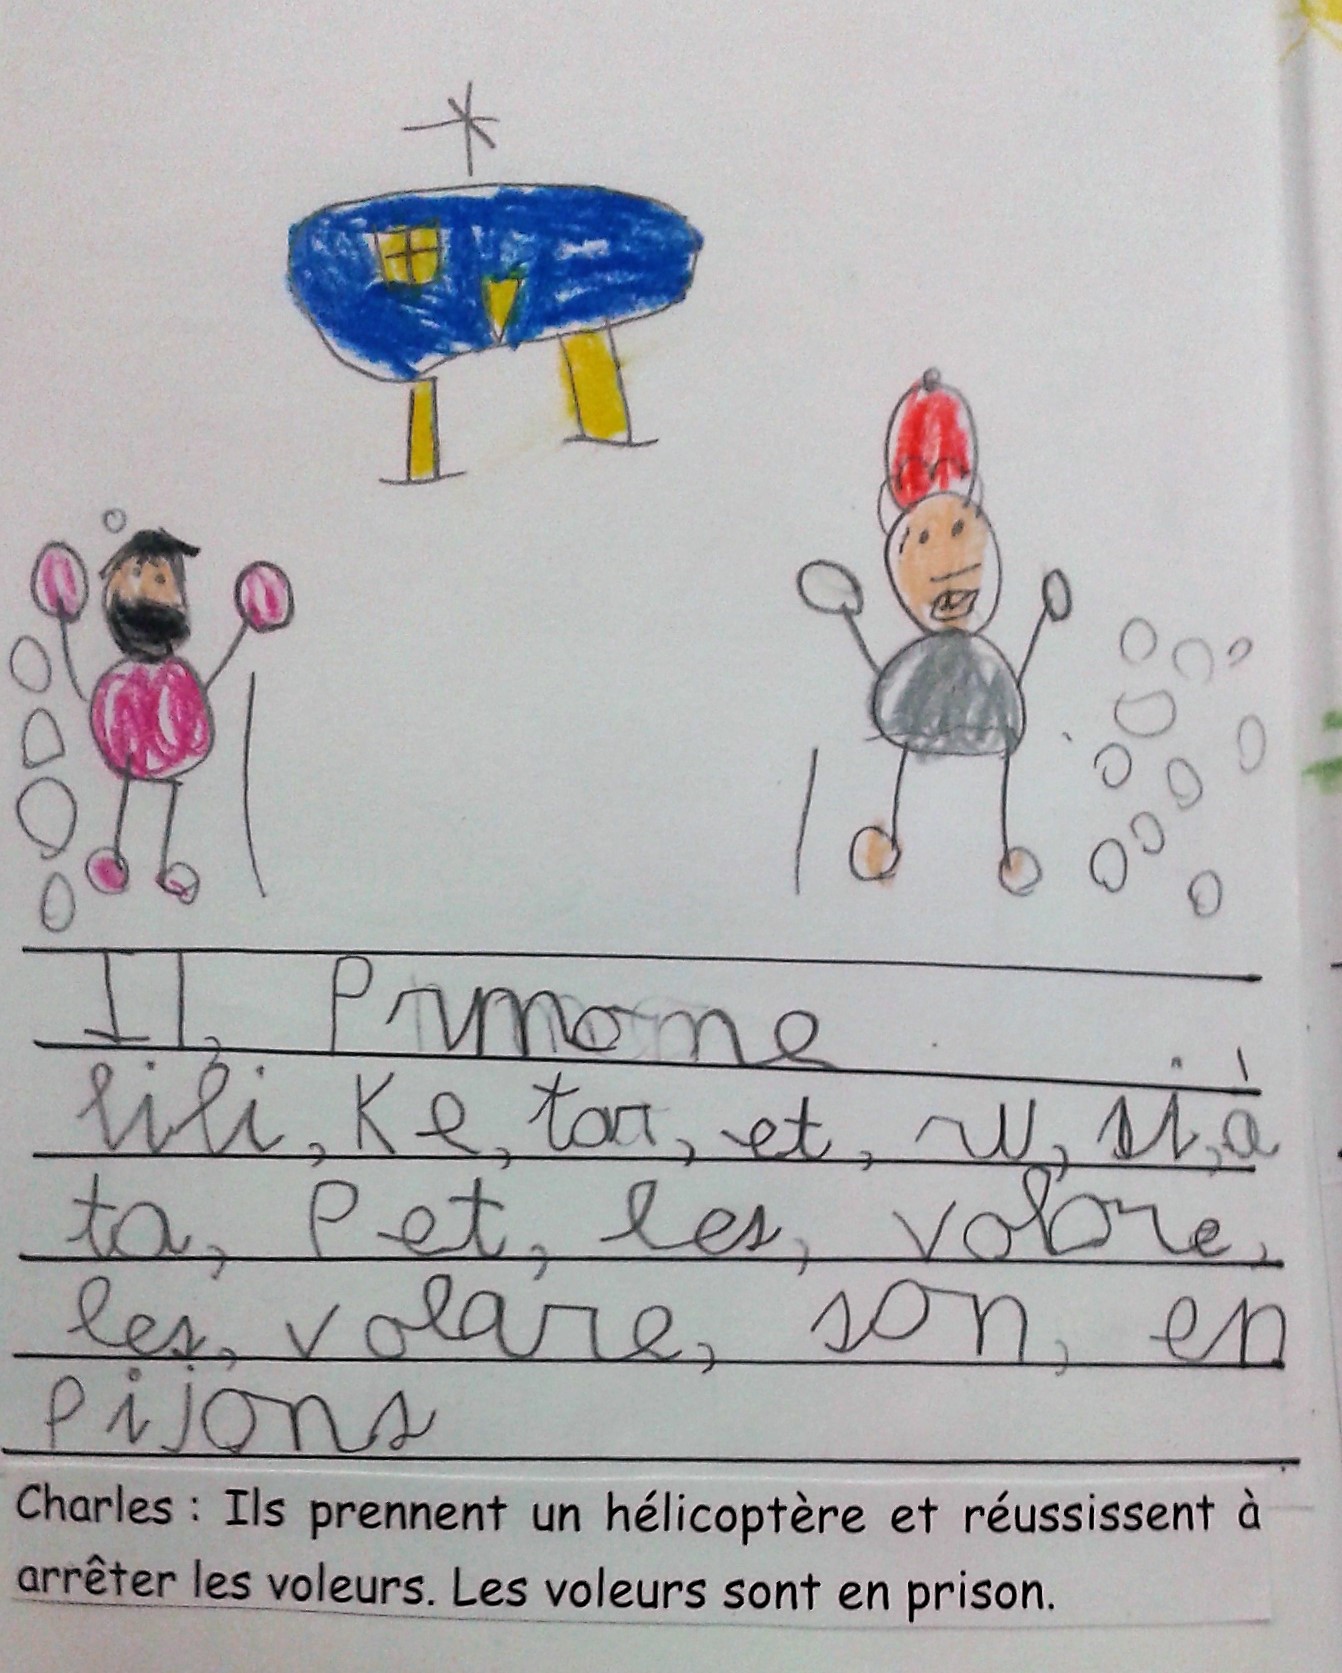 Il, Prnomone
lili, Ke, tar, et, ru, si, à
ta, Pet, les, volore,
les, volare, son, en
pijons
Charles : Ils prennent un hélicoptère et réussissent à
arrêter les voleurs. Les voleurs sont en prison.